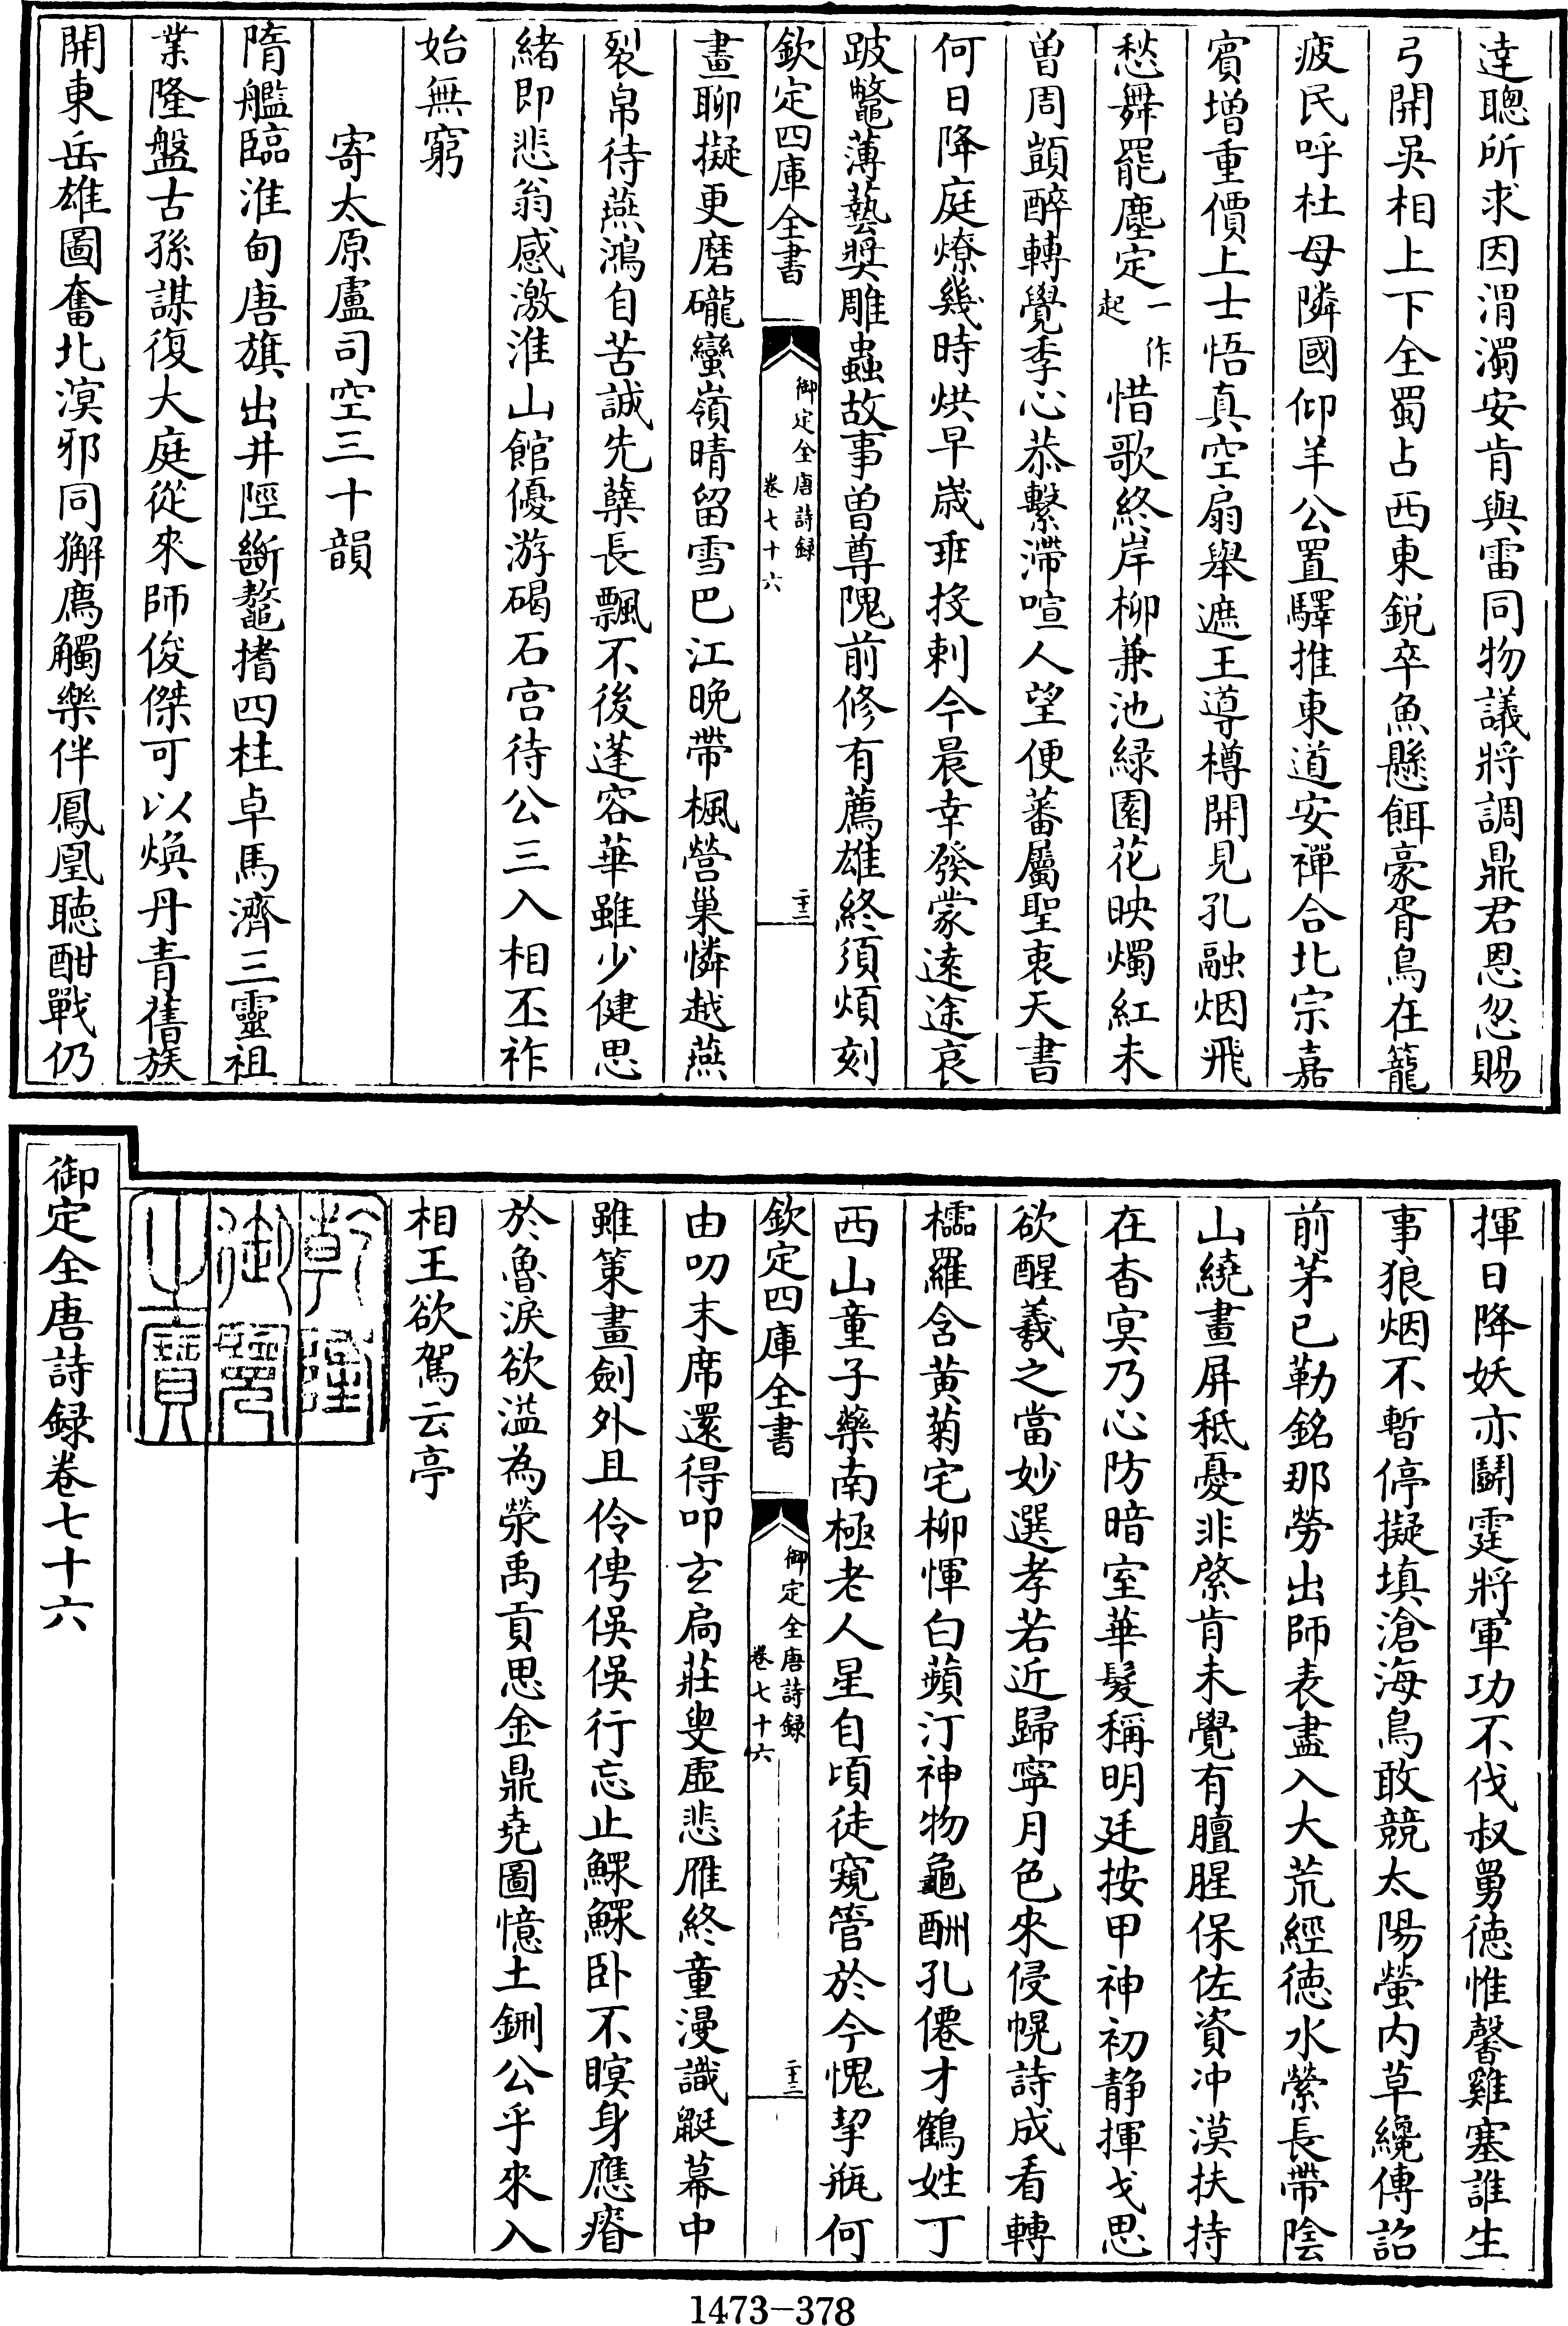 達聰所求因渭濁安肯與雷同物議將調鼎君恩忽賜
弓開吳相上下全蜀占西東鋭卒魚懸餌豪胥鳥在籠
疲民呼杜母隣國仰羊公置驛推東道安禪合北宗嘉
賓增重價上士悟真空扇舉遮王導樽開見孔融烟飛
愁舞罷塵定一作起惜歌終岸柳兼池緑園花映燭紅未
曽周顗醉轉覺季心恭繫滯喧人望便蕃屬聖衷天書
何日降庭燎幾時烘早歲乖投刺今晨幸發蒙逺途哀
跛鼈薄藝奬雕蟲故事曽尊隗前修有薦雄終須煩刻
欽定四庫全書
御定全唐詩録
卷七十六
二十二
畫聊擬更磨礲蠻嶺晴留雪巴江晩帶楓營巢憐越燕
裂帛待燕鴻自苦誠先蘗長飄不後蓬容華雖少健思
緒即悲翁感激淮山館優游碣石宫待公三入相丕祚
始無窮
寄太原盧司空三十韻
隋艦臨淮甸唐旗出井陘斷鼇搘四柱卓馬濟三靈祖
業隆盤古孫謀復大庭從來師俊傑可以煥丹青舊族
開東岳雄圖奮北溟邪同獬廌觸樂伴鳳凰聴酣戰仍
揮日降妖亦鬭霆將軍功不伐叔舅徳惟馨雞塞誰生
事狼烟不暫停擬填滄海鳥敢競太陽螢内草纔傳詔
前茅已勒銘那勞出師表盡入大荒經徳水縈長帶陰
山繞畫屏秪憂非綮肯未覺有羶腥保佐資冲漠扶持
在杳冥乃心防暗室華髮稱明廷按甲神初静揮戈思
欲醒羲之當妙選孝若近歸寧月色來侵幌詩成看轉
櫺羅含黄菊宅柳惲白蘋汀神物龜酬孔僊才鶴姓丁
西山童子藥南極老人星自頃徒窺管於今愧挈瓶何
欽定四庫全書
御定全唐詩録
卷七十六
二十三
由叨末席還得叩玄扃莊叟虚悲雁終童漫識鼮幕中
雖策畫劍外且伶俜俁俁行忘止鰥鰥卧不瞑身應瘠
於魯淚欲溢為滎禹貢思金鼎堯圖憶土鉶公乎來入
相王欲駕云亭
乾隆
御覽
之寶
御定全唐詩録卷七十六
1473-378